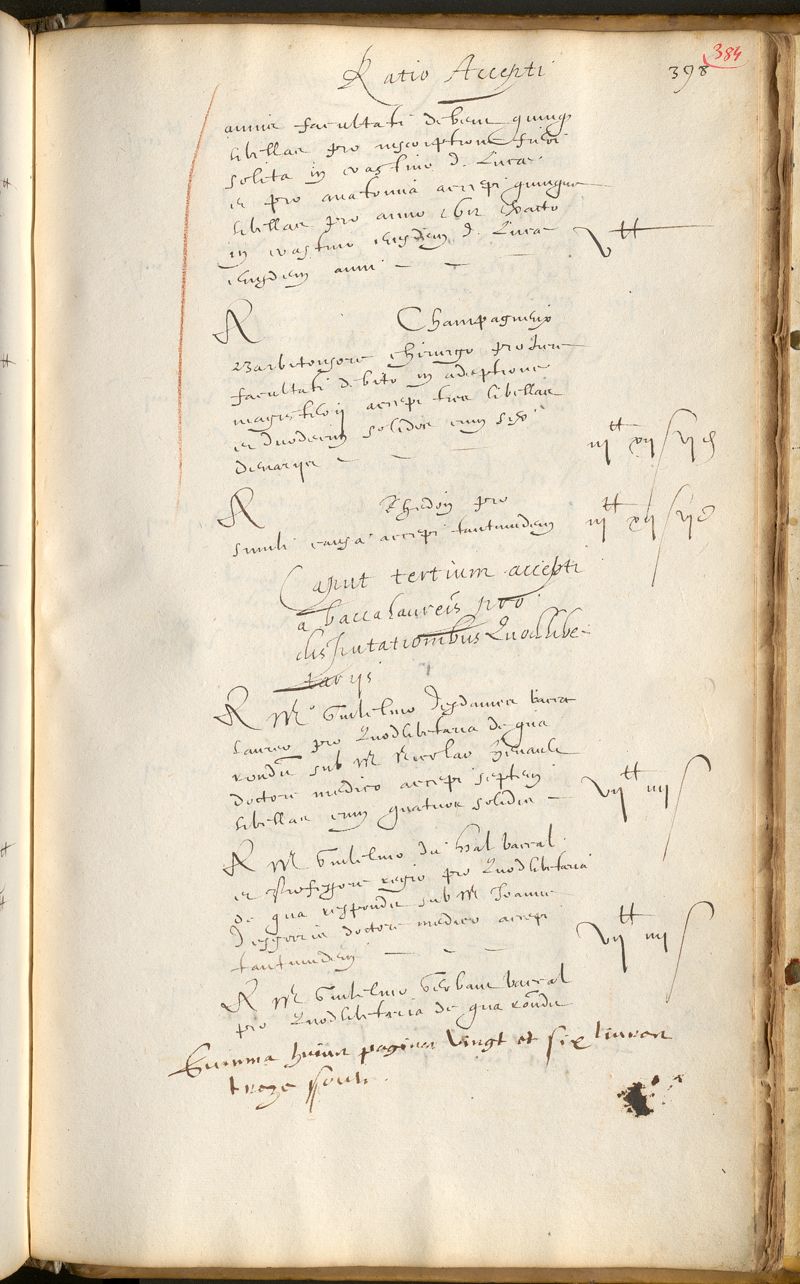 Ratio Accepti
398
384
annis facultati debent quinqꝫ
libellas pro inscriptione fieri
solita in crastino d. Lucae
et pro anatomia accepi quinque
libellas pro anno 1612 exacto
in crastino eiusdem d. Lucae
eiusdem anni — — — v ₶
A Champagneix
Barbitonsore chirurgo pro iure
facultati debito in adeptione
magisterii accepi tres libellas
et duodecim solidos cum sex
denariis — — — iii ₶ xii s vi d
A Rhedon pro
simili causa accepi tantumdem iii ₶ xii s vi d
Caput tertium accepti
a baccalaureis pro
disputationibus Quodlibe-
tariis
A Mº Guilielmo Desdames bacca
laureo pro Quodlibetaria de qua
rondit sub M Nicolao Henault
doctore medico accepi septem
libellas cum quatuor solidis — vii ₶ iiii s
A M Guilielmo du Val baccal.
et Professore regio pro Quodlibetaria
de qua respondit sub M Joanne
doctore medico accepi
tantumdem — — — vii ₶ iiii s
A M Guilielmo Gerbault baccal
pro Quodlibetaria de qua rondit
Summa huius paginae Vingt et six livres
treze soulz.